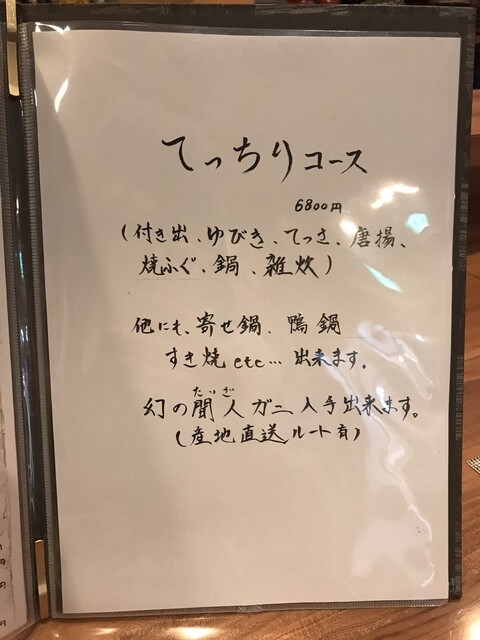 てっちりコース
6800円
(付き出、ゆびき、てっさ、唐揚、
焼ふぐ、鍋、雑炊)
他にも、寄せ鍋、鴨鍋
すき焼etc…出来ます。
たいざ
幻の聞人ガニ入手出来ます。
(産地直送ルート有)